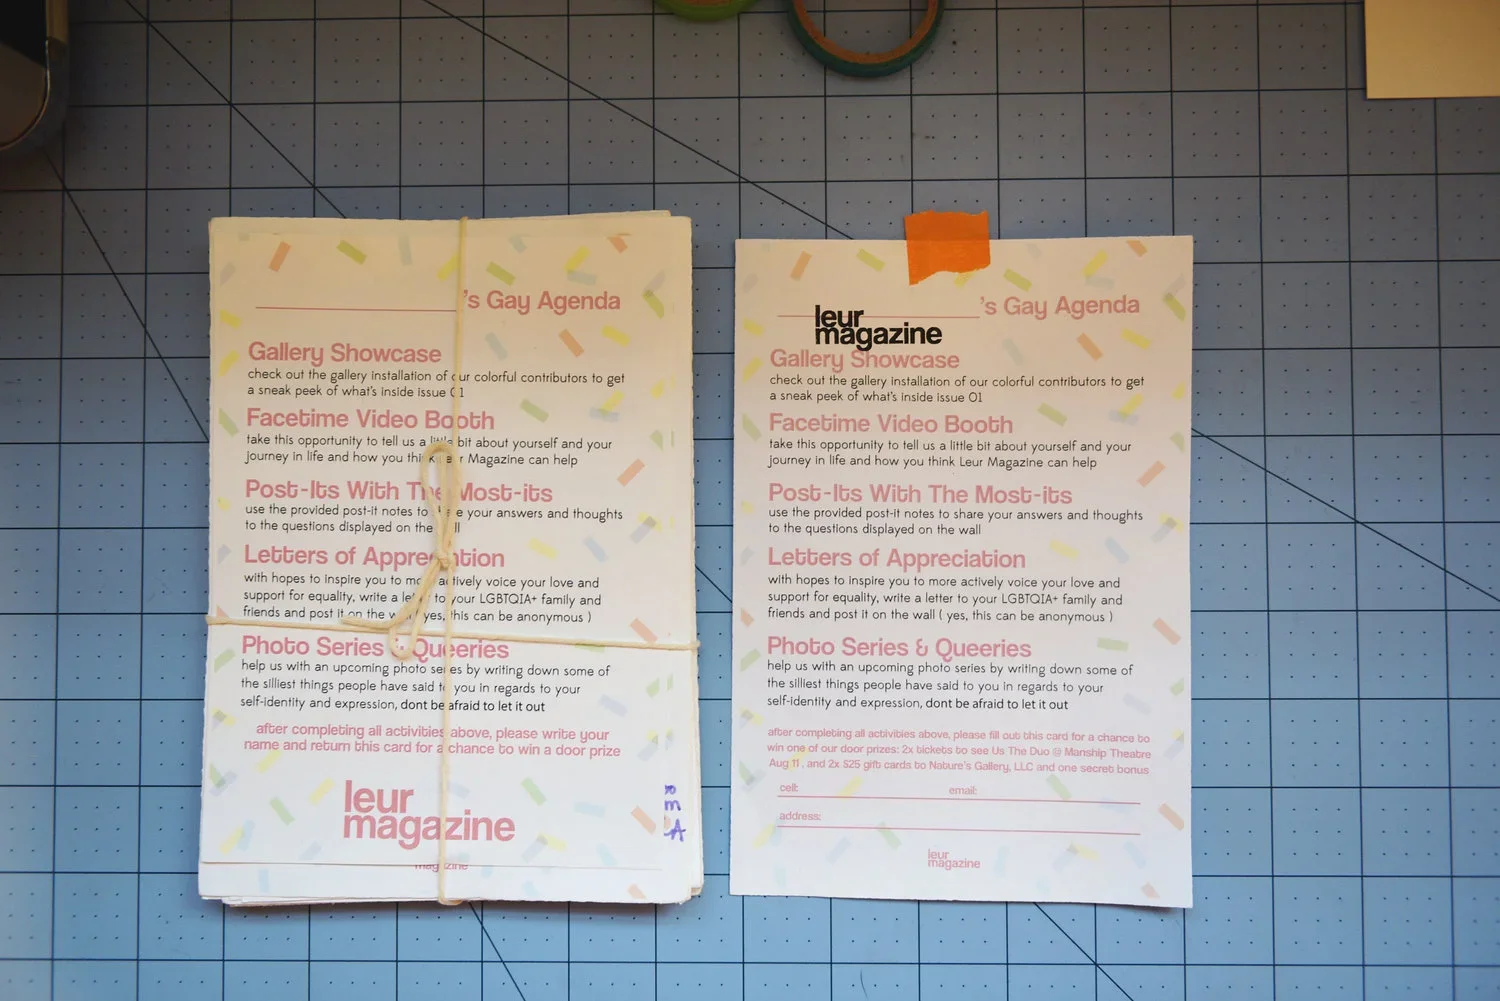 's Gay Agenda
Gallery Showcase
check out the gallery installation of our colorful contributors to get
a sneak peek of what's inside issue 01
Facetime Video Booth
take this opportunity to tell us a little bit about yourself and your
journey in life and how you think Leur Magazine can help
Post-Its With The Most-its
use the provided post-it notes to share your answers and thoughts
to the questions displayed on the wall
Letters of Appreciation
with hopes to inspire you to more actively voice your love and
support for equality, write a letter to your LGBTQIA+ family and
friends and post it on the wall ( yes, this can be anonymous )
Photo Series & Queeries
help us with an upcoming photo series by writing down some of
the silliest things people have said to you in regards to your
self-identity and expression, dont be afraid to let it out
after completing all activities above, please write your
name and return this card for a chance to win a door prize
leur
magazine
magazine
's Gay Agenda
leur
magazine
Gallery Showcase
check out the gallery installation of our colorful contributors to get
a sneak peek of what's inside issue 01
Facetime Video Booth
take this opportunity to tell us a little bit about yourself and your
journey in life and how you think Leur Magazine can help
Post-Its With The Most-its
use the provided post-it notes to share your answers and thoughts
to the questions displayed on the wall
Letters of Appreciation
with hopes to inspire you to more actively voice your love and
support for equality, write a letter to your LGBTQIA+ family and
friends and post it on the wall ( yes, this can be anonymous )
Photo Series & Queeries
help us with an upcoming photo series by writing down some of
the silliest things people have said to you in regards to your
self-identity and expression, dont be afraid to let it out
after completing all activities above, please fill out this card for a chance to
win one of our door prizes: 2x tickets to see Us The Duo @ Manship Theatre
Aug 11 , and 2x $25 gift cards to Nature's Gallery, LLC and one secret bonus
cell: email:
address:
leur
magazine